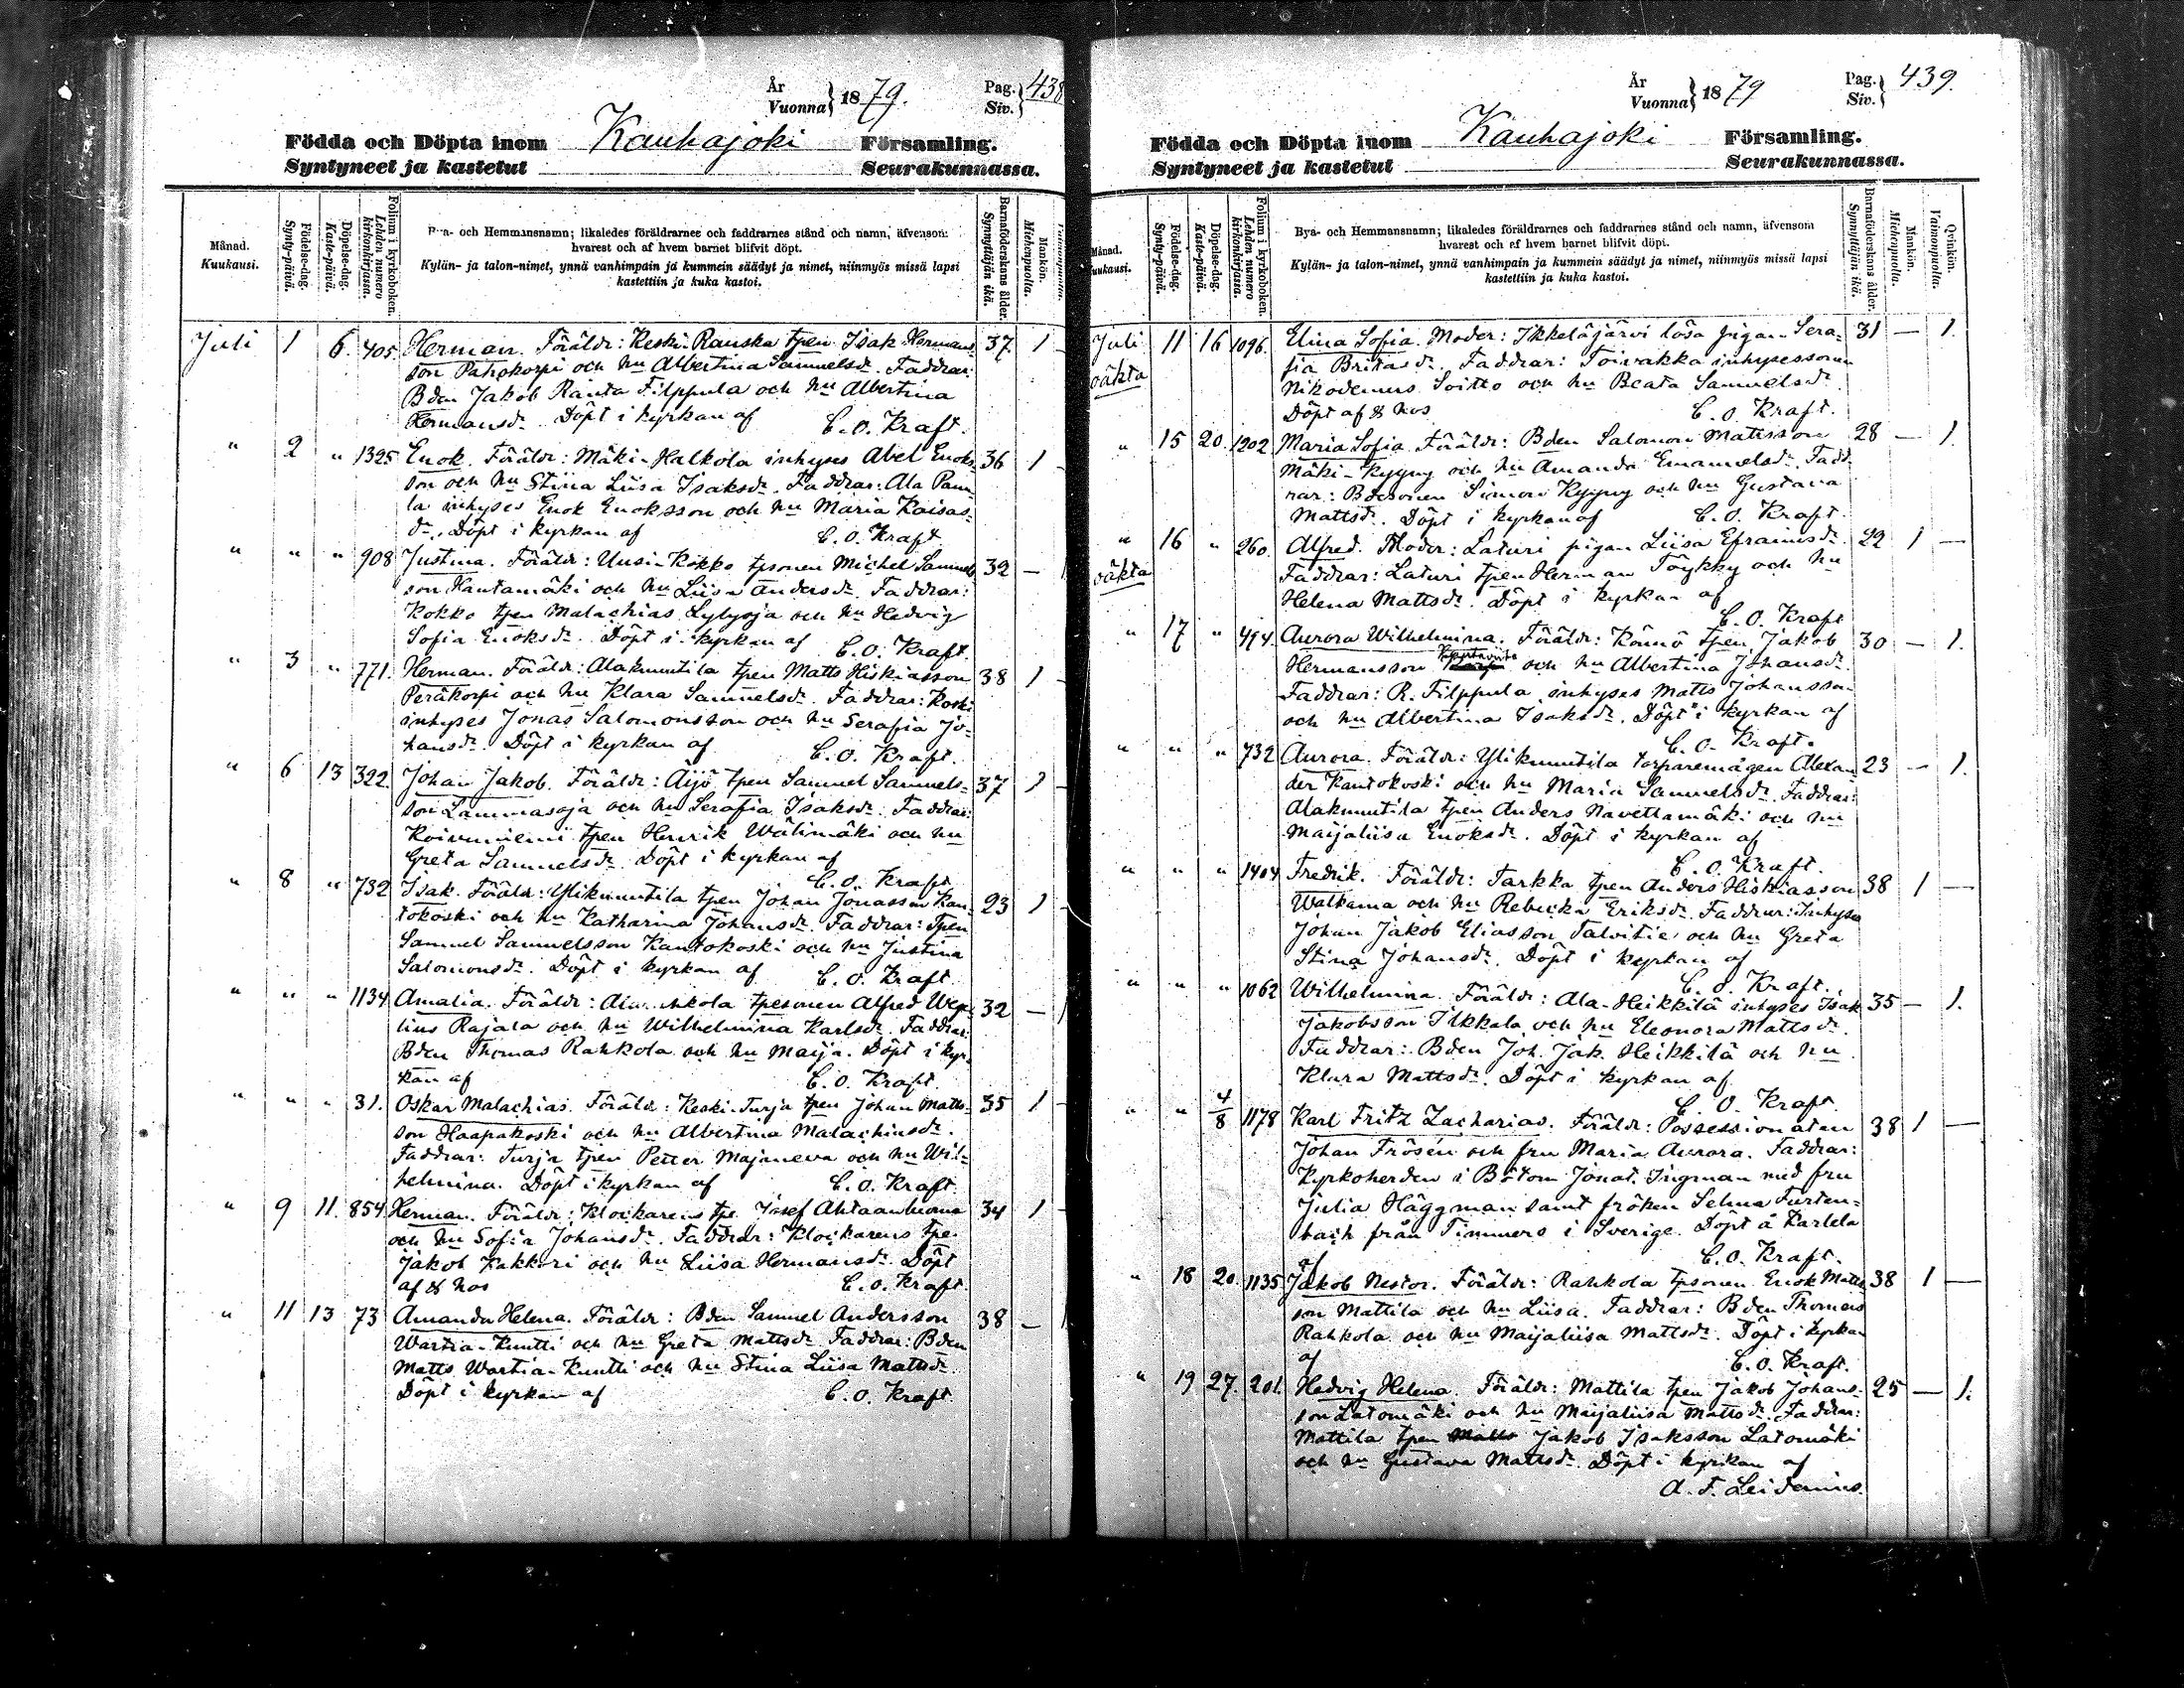 År
Vuonna } 18 79.
Pag.
Siv. } 438
Födda och Döpta inom Kauhajoki Församling.
Syntyneet ja kastetut Seurakunnassa.
Månad.
Kuukausi.
Födelse-dag.
Synty-päivä.
Döpelse-dag.
Kaste-päivä.
Folium i kyrkoboken.
Lehden numero
kirkonkirjassa.
Bya- och Hemmansnamn; likaledes föräldrarnes och faddrarnes stånd och namn, äfvensom
hvarest och af hvem barnet blifvit döpt.
Kylän- ja talon-nimet, ynnä vanhimpain ja kummein säädyt ja nimet, niinmyös missä lapsi
kastettiin ja kuka kastoi.
Barnaföderskans ålder.
Synnyttäjän ikä.
Mankön.
Miehenpuolta.
Juli 1 6. 405 Herman. Föräldr: Keski-Rauska tpen Isak Hermans- 37. 1
son Pahokorpi och hu Albertina Samuelsdr. Faddrar:
Bden Jakob Ranta Filppula och hu Albertina
Hermansdr. Döpt i kyrkan af C. O. Kraft.
" 2 " 1325 Enok. Föräldr: Mäki-Halkola inhyses Abel Enoks- 36 1
son och hu Stina Liisa Isaksdr. Faddrar: Ala Panu-
la inhyses Enok Enoksson och hu Maria Kaisas-
dr. Döpt i kyrkan af C. O. Kraft
" " " 908 Justina. Föräldr: Uusi-Kokko tpsonen Michel Samuels 32 —
son Hautamäki och hu Liisa Andersdr. Faddrar:
Kokko tpen Malachias Lylyoja och hu Hedvig
Sofia Enoksdr. Döpt i kyrkan af C. O. Kraft.
" 3 " 771. Herman. Föräldr: Alaknuutila tpen Matts Hiskiasson 38 1
Peräkorpi och hu Klara Samuelsdr. Faddrar: Koski
inhyses Jonas Salomonsson och hu Serafia Jo-
hansdr. Döpt i kyrkan af C. O. Kraft.
" 6 13 322. Johan Jakob. Föräldr: Äijö tpen Samuel Samuels- 37 1
son Lammasoja och hu Serafia Isaksdr. Faddrar:
Koivuniemi tpen Henrik Wälimäki och hu
Greta Samuelsdr. Döpt i kyrkan af
C. O. Kraft
" 8 " 732 Isak. Föräldr: Yliknuutila tpen Johan Jonasson Kan- 23 1
tokoski och hu Katharina Johansdr. Faddrar: Tpen
Samuel Samuelsson Kantokoski och hu Justina
Salomonsdr. Döpt i kyrkan af C. O. Kraft
" " " 1134 Amalia. Föräldr: tpesonen Alfred 32 —
lius Rajala och hu Wilhelmina Karlsdr. Faddrar:
Bden Thomas Rahkola och hu Maija. Döpt i kyr-
kan af C. O. Kraft.
" " " 31. Oskar Malachias. Föräldr: Keski-Turja tpen Johan Matts- 35 1
son Haapakoski och hu Albertina Malachiasdr.
Faddrar: Turja tpen Petter Majaneva och hu Wil-
helmina. Döpt i kyrkan af C. O. Kraft.
" 9 11. 854 Herman. Föräldr: Klockarens tpe Josef 34 1
och hu Sofia Johansdr. Faddrar: Klockarens tpe.
Jakob Kakkori och hu Liisa Hermansdr. Döpt
af & hos C. O. Kraft.
" 11 13 73 Amanda Helena. Föräldr: Bden Samuel Andersson 38 —
Wartia-Kuntti och hu Greta Mattsdr. Faddrar: Bden
Matts Wartia-Kuntti och hu Stina Liisa Mattsdr.
Döpt i kyrkan af C. O. Kraft.
År
Vuonna } 18 79
Pag.
Siv. } 439.
Födda och Döpta inom Kauhajoki Församling.
Syntyneet ja kastetut Seurakunnassa.
Månad.
Kuukausi.
Födelse-dag.
Synty-päivä.
Döpelse-dag.
Kaste-päivä.
Folium i kyrkoboken.
Lehden numero
kirkonkirjassa.
Bya- och Hemmansnamn; likaledes föräldrarnes och faddrarnes stånd och namn, äfvensom
hvarest och af hvem barnet blifvit döpt.
Kylän- ja talon-nimet, ynnä vanhimpain ja kummein säädyt ja nimet, niinmyös missä lapsi
kastettiin ja kuka kastoi.
Barnaföderskans ålder.
Synnyttäjän ikä.
Mankön.
Miehenpuolta.
Qvinkön.
Vaimonpuolta.
Juli 11 16 1096. Elina Sofia. Moder: Ikkeläjärvi lösa pigan Sera- 31 — 1.
oäkta fia Britasdr. Faddrar: Toivakka inhysessonen
Nikodemus Soitto och hu Beata Samuelsdr.
Döpt af & hos C. O. Kraft.
" 15 20 1202 Maria Sofia. Föräldr: Bden Salomon Mattsson 28 — 1.
Mäki-Kyyny och hu Amanda Emanuelsdr. Fadd-
rar: Bdesonen Simon Kyyny och hu Gustava
Mattsdr. Döpt i kyrkan af C. O. Kraft.
" 16 " 260. Alfred. Moder: Laturi pigan Liisa Eframsdr 22 1 —
oäkta Faddrar: Laturi tpen Herman Töykky och hu
Helena Mattsdr. Döpt i kyrkan af
C. O. Kraft
" 17 " 494. Aurora Wilhelmina. Föräldr: Könnö tpen Jakob 30 — 1.
Hermansson och hu Albertina Johansdr.
Faddrar: R. Filppula inhyses Matts Johansson
och hu Albertina Isaksdr. Döpt i kyrkan af
C. O. Kraft.
" " " 732 Aurora. Föräldr: Yliknuutila torparemågen Alexan- 23 — 1.
der Kantokoski och hu Maria Samuelsdr. Faddrar:
Alaknuutila tpen Anders Navettamäki och hu
Maijaliisa Enoksdr. Döpt i kyrkan af
C. O. Kraft.
" " " 1404 Fredrik. Föräldr: Tarkka tpen Anders Hiskiasson 38 1 —
Walkama och hu Rebecka Eriksdr. Faddrar: Inhyses
Johan Jakob Eliasson Talvitie och hu Greta
Stina Johansdr. Döpt i kyrkan af
C. O. Kraft.
" " " 1062 Wilhelmina. Föräldr: Ala-Heikkilä inhyses Isak 35 — 1.
Jakobsson Ilkkala och hu Eleonora Mattsdr.
Faddrar: Bden Joh. Jak. Heikkilä och hu
Klara Mattsdr. Döpt i kyrkan af
C. O. Kraft.
" " 4/8 1178 Karl Fritz Zacharias. Föräldr: Possessionaten 38 1 —
Johan Frosén och fru Maria Aurora. Faddrar:
Kyrkoherden i Bötom Jonat. Ingman med fru
Julia Häggman samt fröken Selma Furten-
bach från Timmers i Sverige. Döpt å Karlela
af C. O. Kraft.
" 18 20. 1135 Jakob Nestor. Föräldr: Rahkola tpsonen Enok Matts 38 1 —
son Mattila och hu Liisa. Faddrar: Bden Thomas
Rahkola och hu Maijaliisa Mattsdr. Döpt i kyrkan
af C. O. Kraft.
" 19 27. 201. Hedvig Helena. Föräldr: Mattila tpen Jakob Johans- 25 — 1.
son Latomäki och hu Maijaliisa Mattsdr. Faddrar:
Mattila tpen Matts Jakob Isaksson Latomäki
och hu Gustava Mattsdr. Döpt i kyrkan af
A. F. Leidenius.